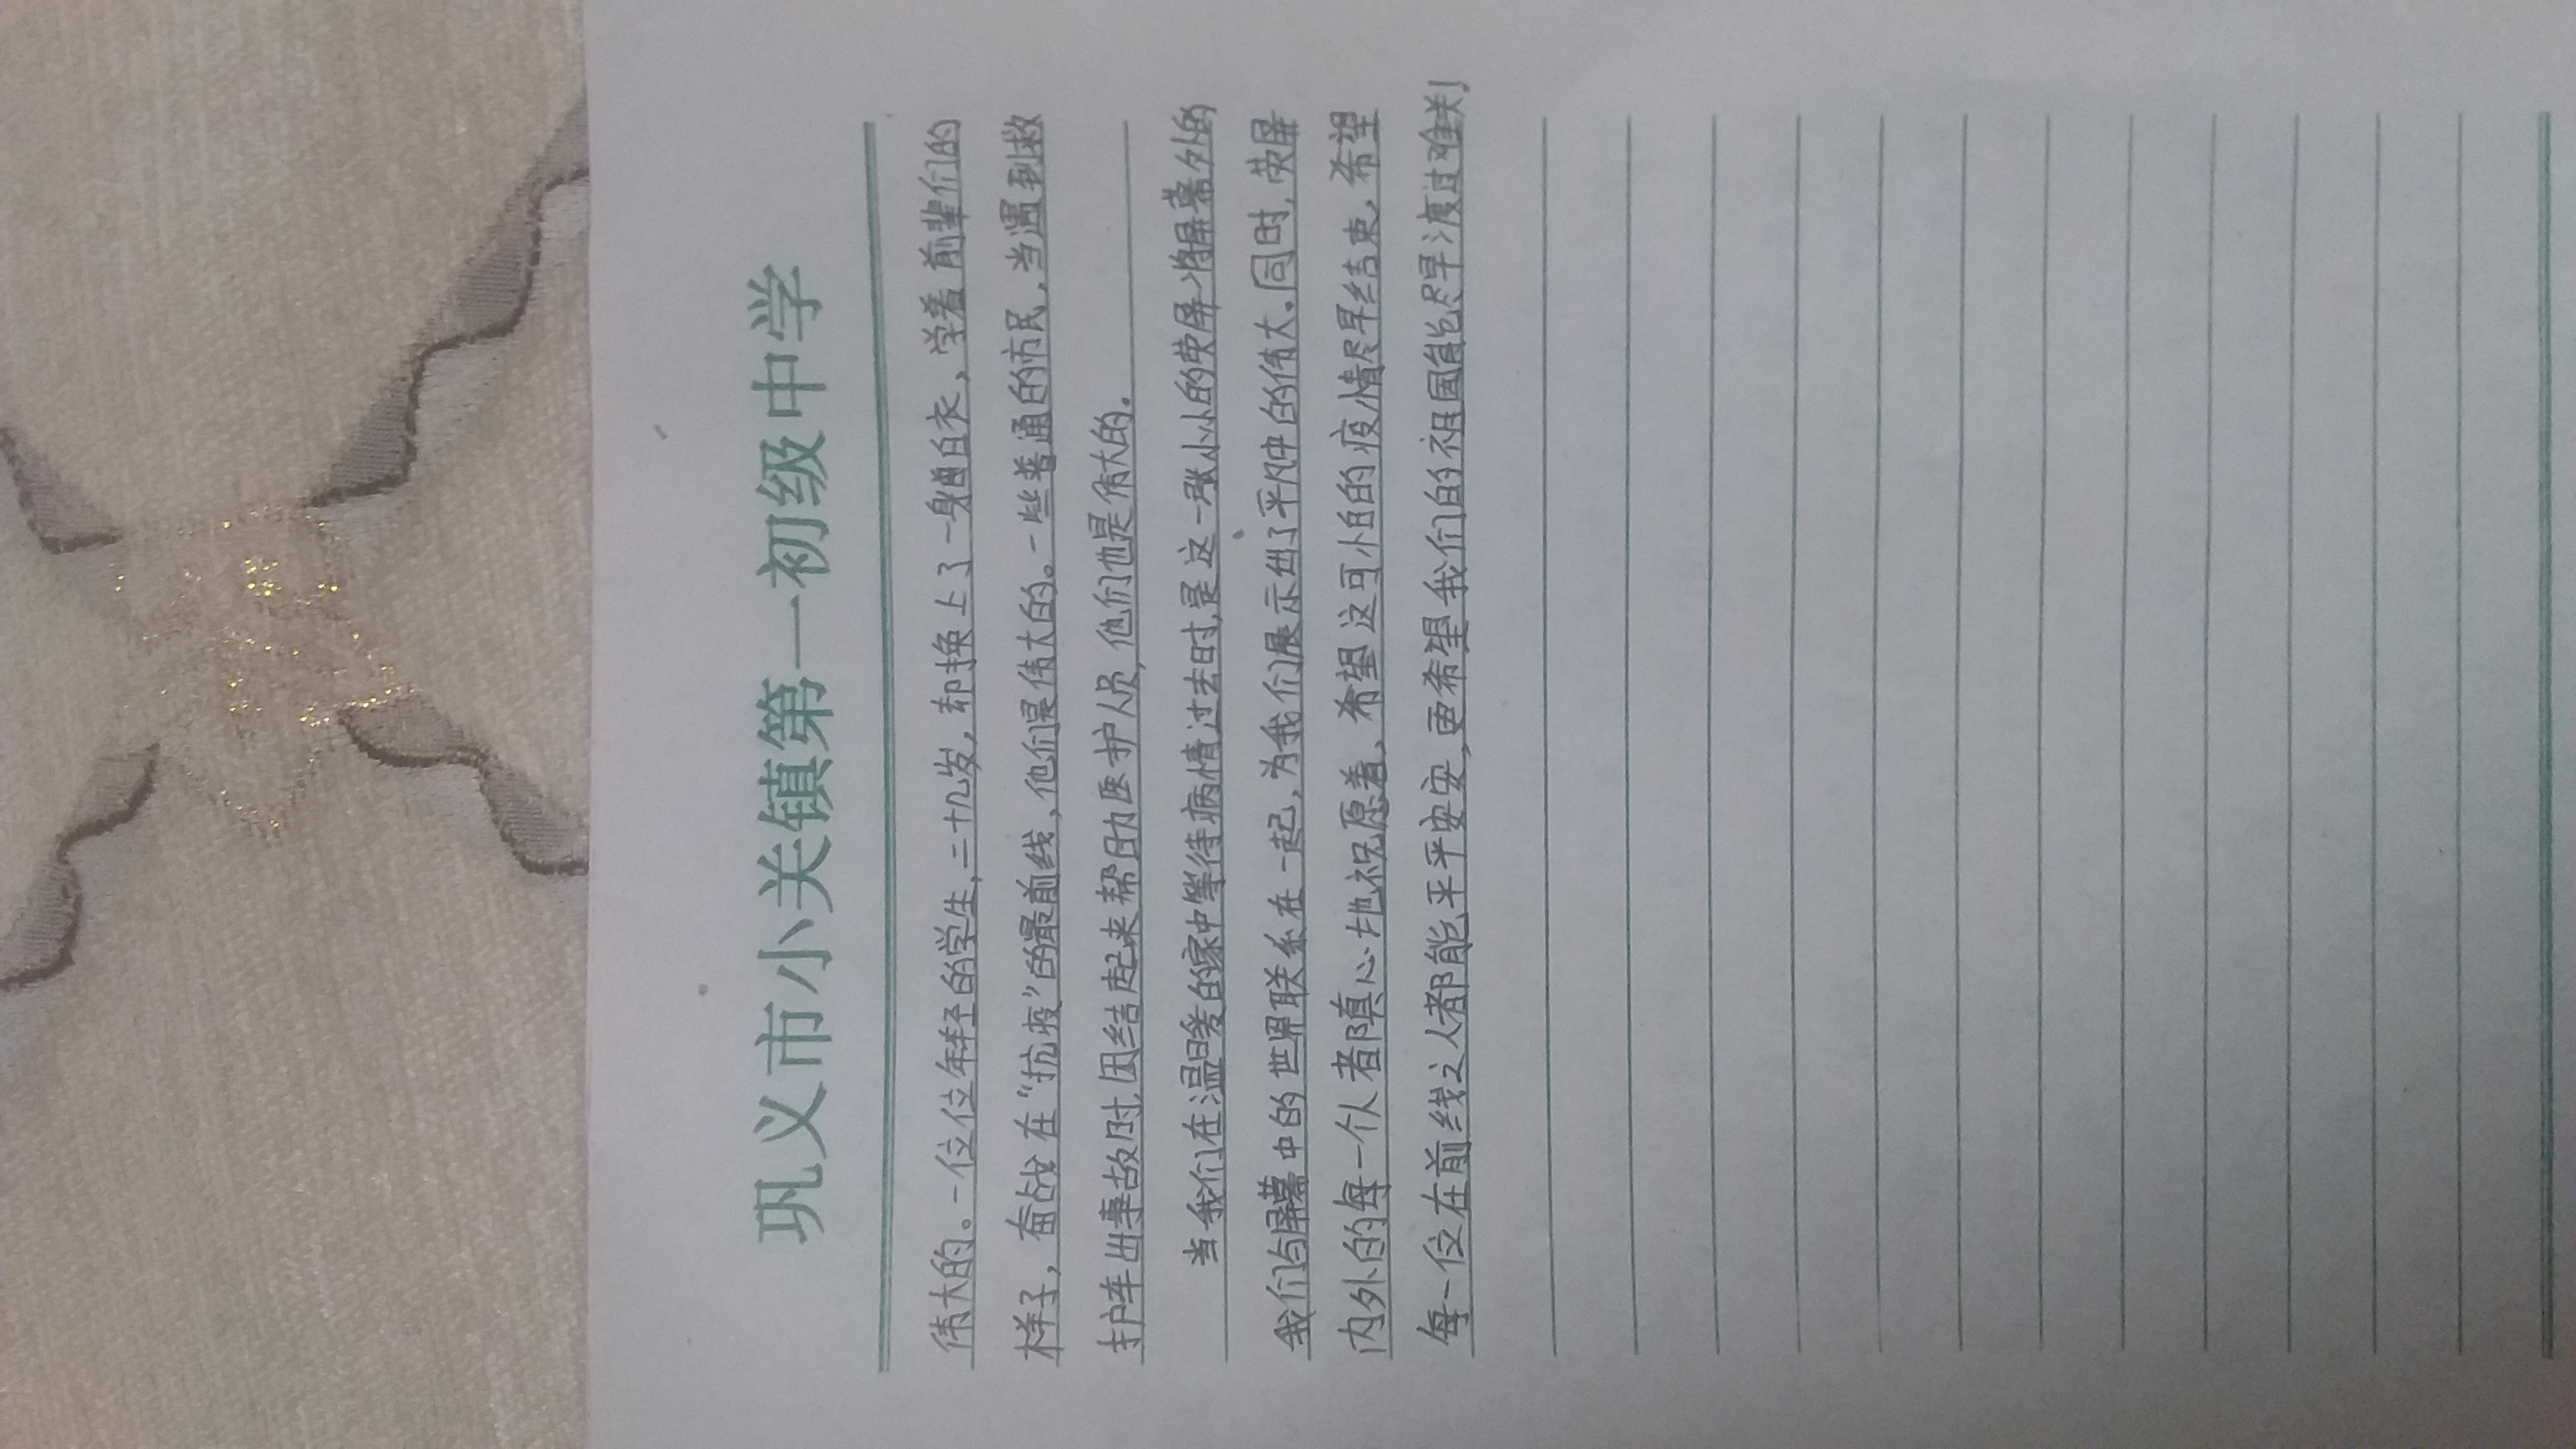 巩义市小关镇第一初级中学
伟大的。一位位年轻的学生,二十几岁,却换上了一身白衣,学着前辈们的
样子,奋战在“抗疫”的最前线,他们是伟大的。一些普通的市民,当遇到救
护车出事故时,团结起来帮助医护人员,他们也是伟大的.
当我们在温暖的家中等待病情过去时,是这一张小小的荧屏将屏幕外的
我们与屏幕中的世界联系在一起,为我们展示出了平凡中的伟大。同时,荧屏
内外的每一个人都真心地祝愿着,希望这可怕的疫情尽早结束,希望
每一位在前线之人都能平平安安,更希望我们的祖国能尽早渡过难关,